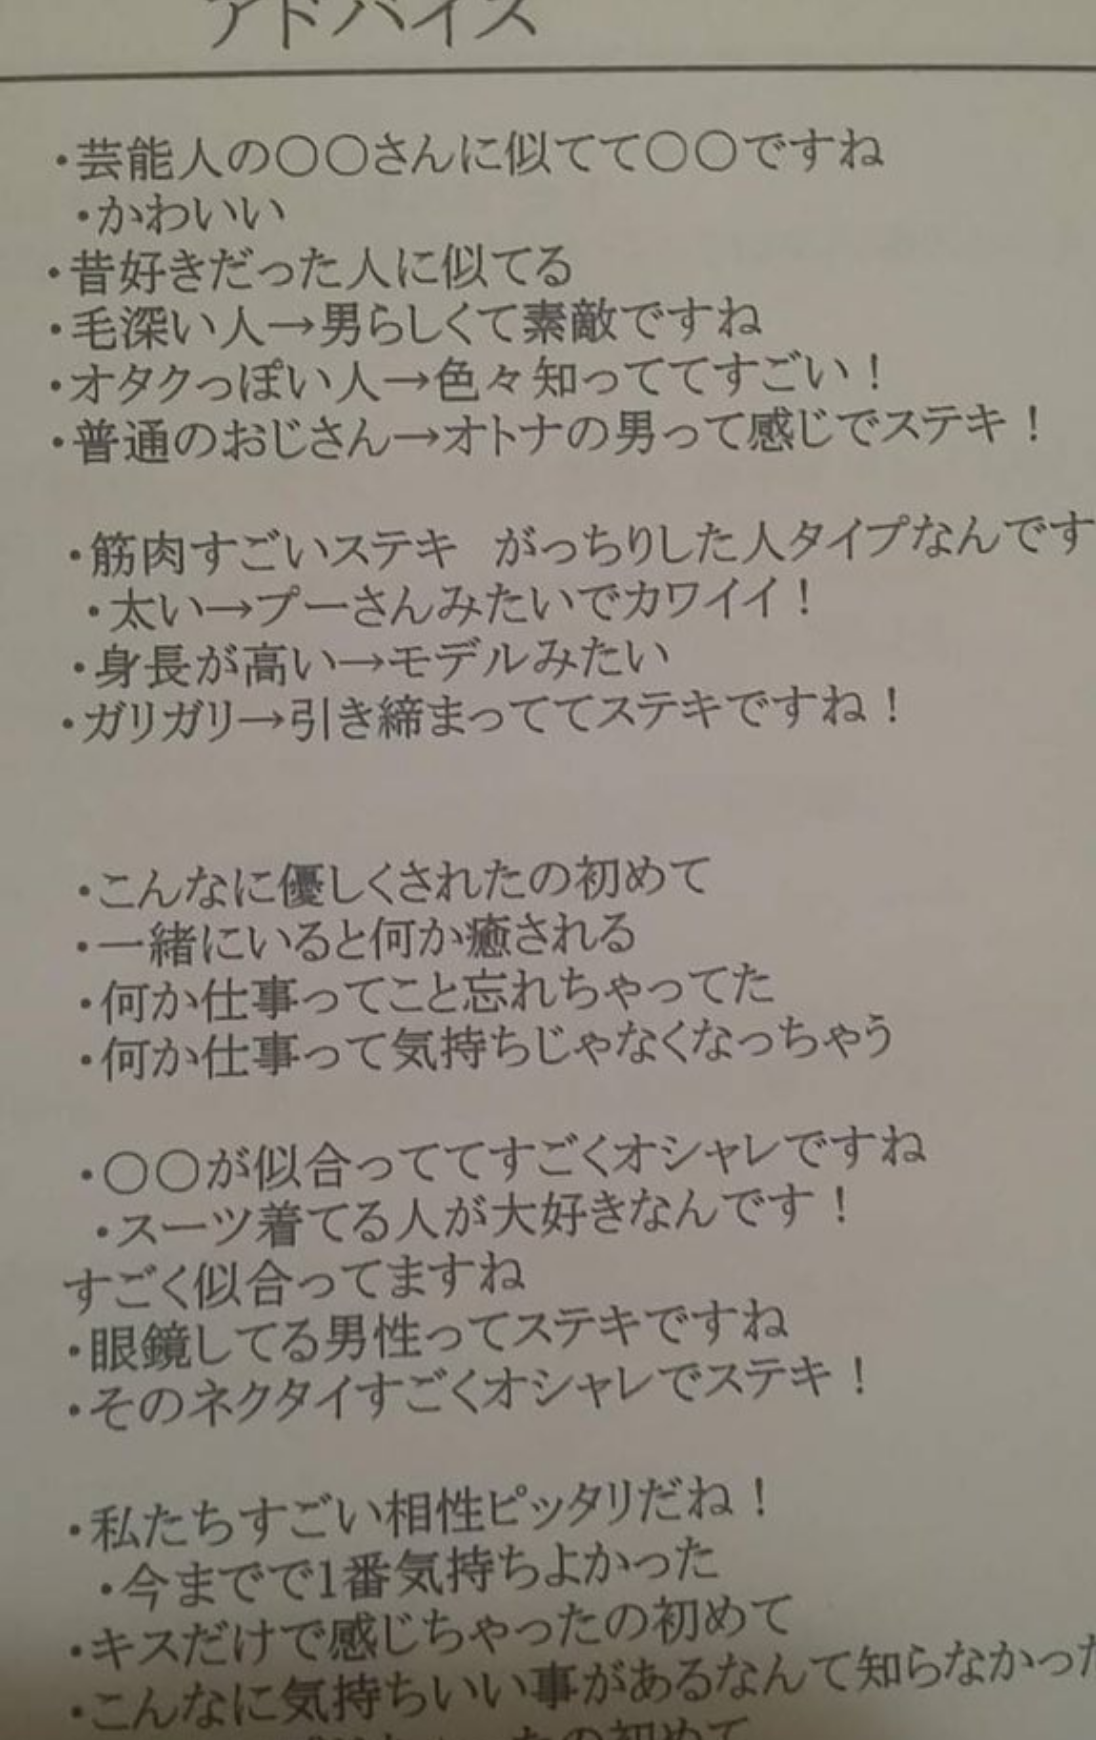 アドバイス
・芸能人の○○さんに似てて○○ですね
・かわいい
・昔好きだった人に似てる
・毛深い人→男らしくて素敵ですね
・オタクっぽい人→色々知っててすごい！
・普通のおじさん→オトナの男って感じでステキ！
・筋肉すごいステキ　がっちりした人タイプなんです
・太い→プーさんみたいでカワイイ！
・身長が高い→モデルみたい
・ガリガリ→引き締まっててステキですね！
・こんなに優しくされたの初めて
・一緒にいると何か癒される
・何か仕事ってこと忘れちゃってた
・何か仕事って気持ちじゃなくなっちゃう
・○○が似合っててすごくオシャレですね
・スーツ着てる人が大好きなんです！
すごく似合ってますね
・眼鏡してる男性ってステキですね
・そのネクタイすごくオシャレでステキ！
・私たちすごい相性ピッタリだね！
・今までで1番気持ちよかった
・キスだけで感じちゃったの初めて
・こんなに気持ちいい事があるなんて知らなかった
たの初めて